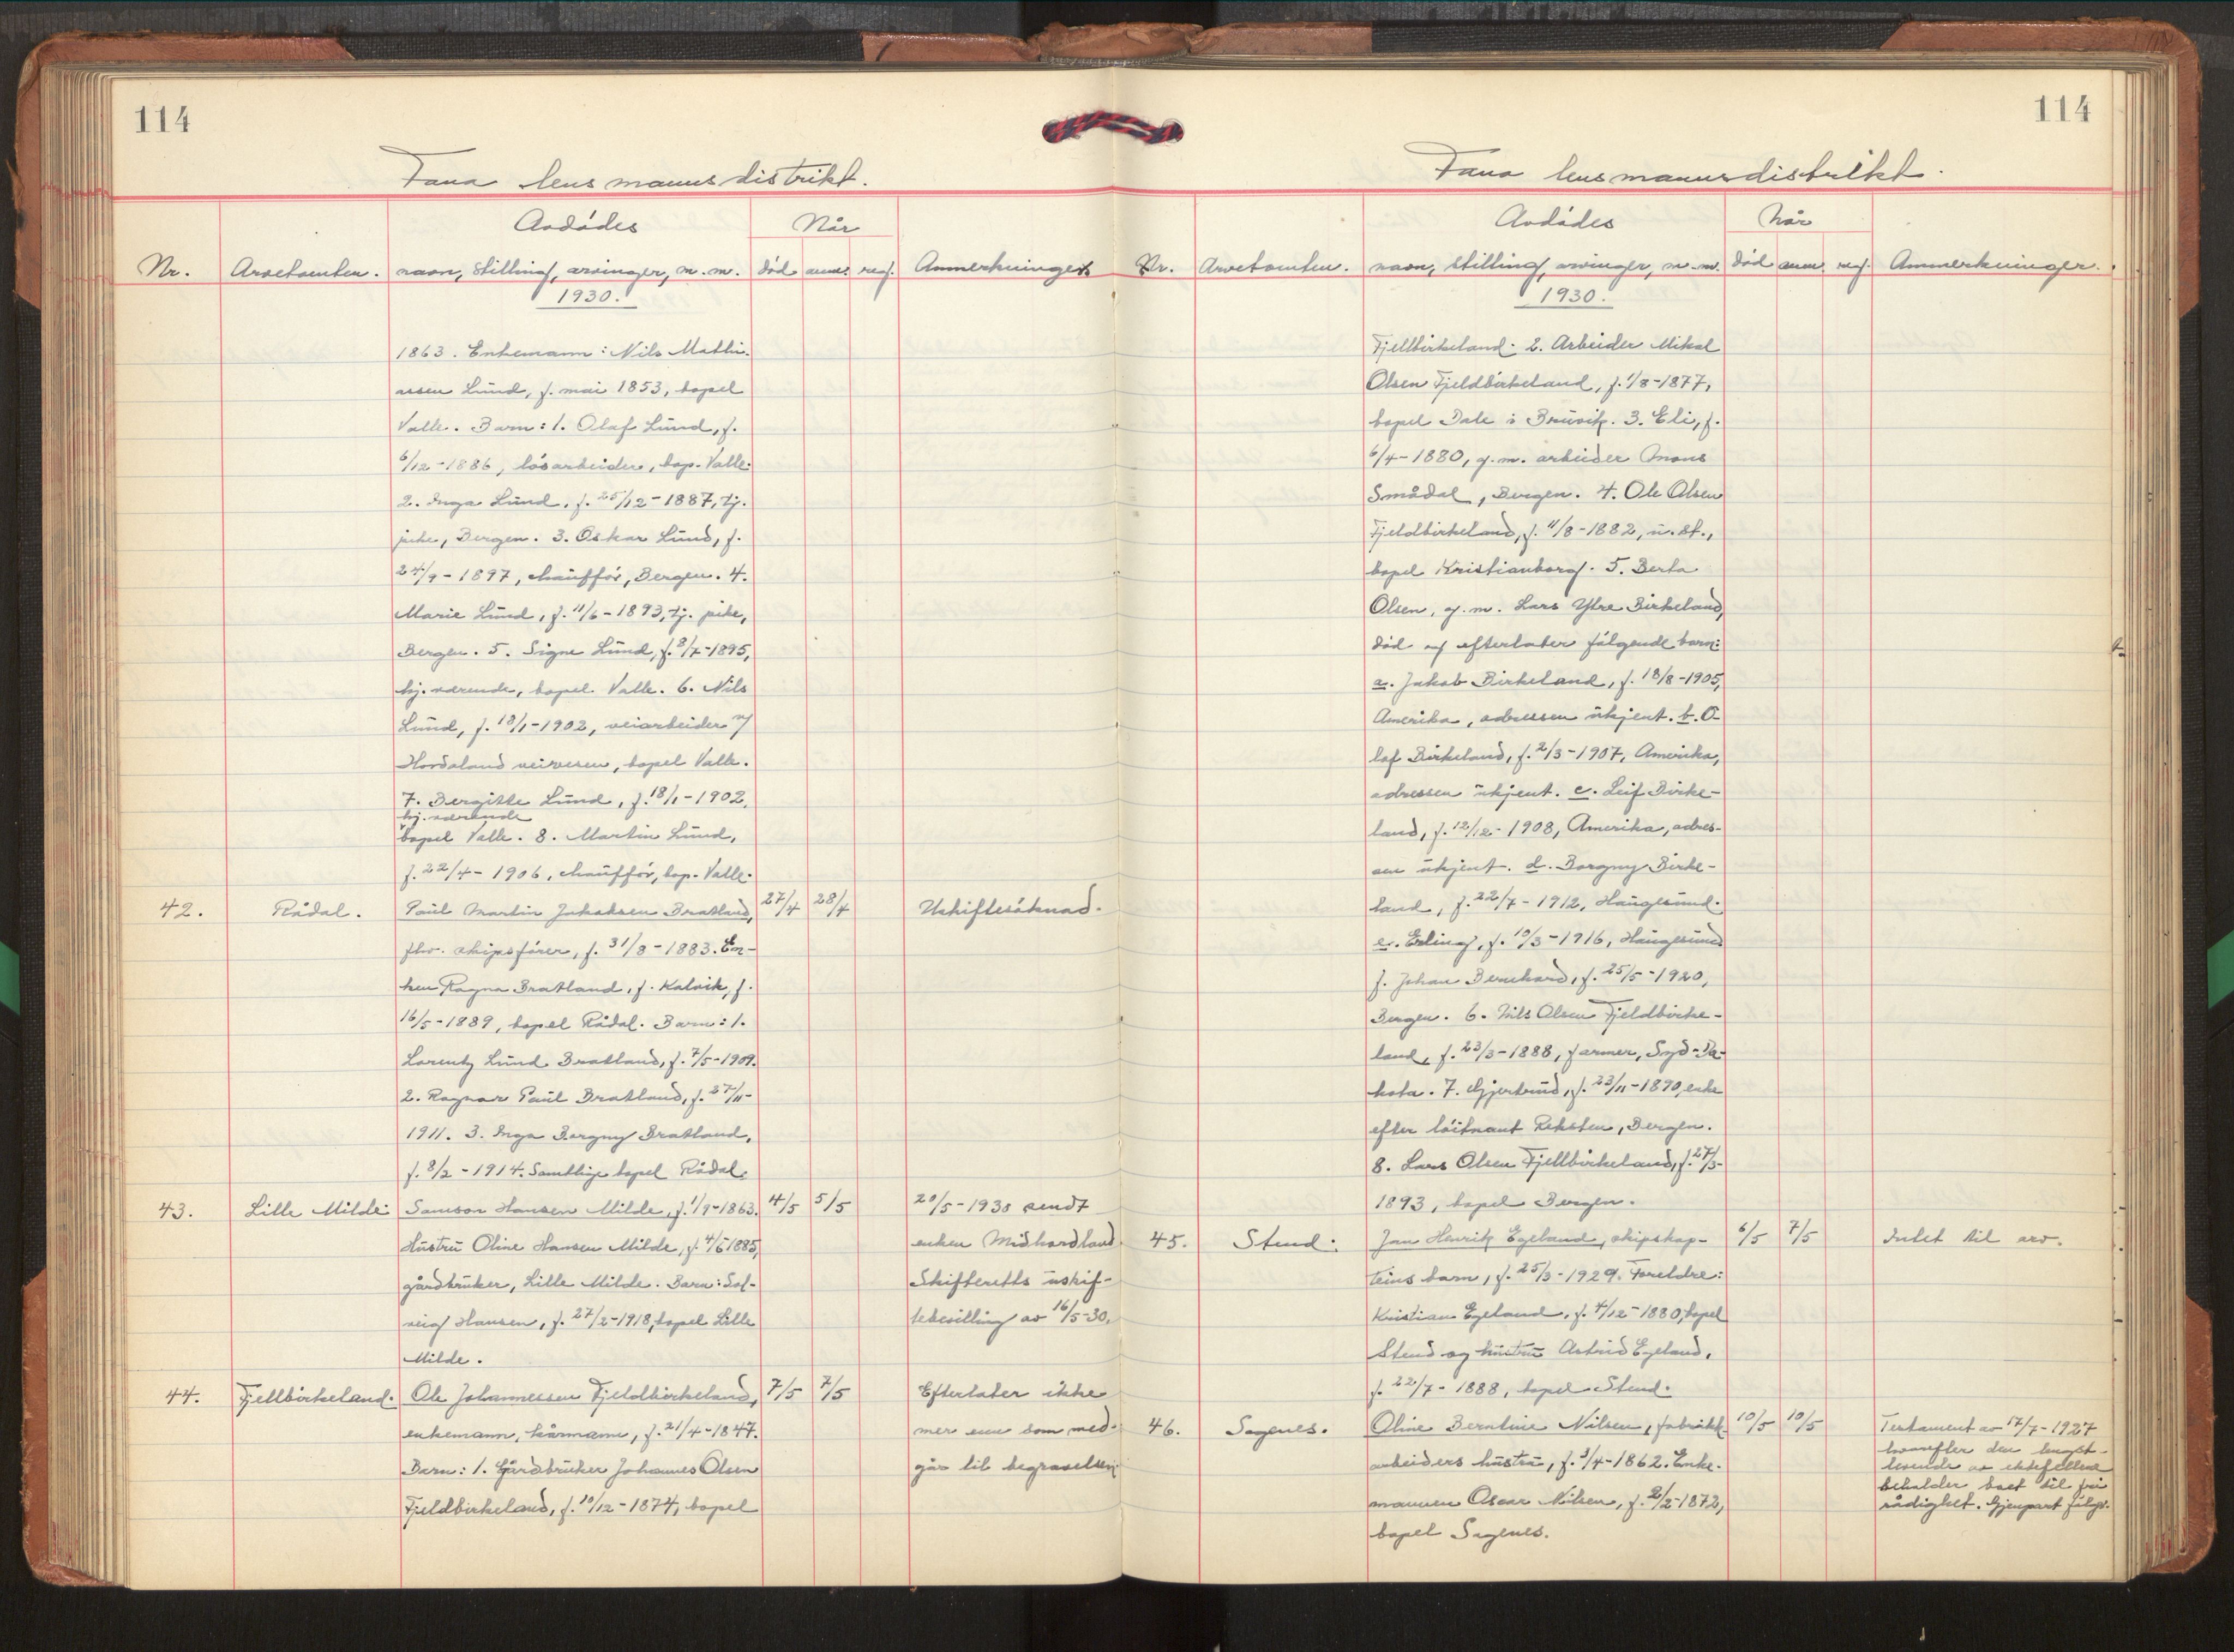 114
Fana lensmannsdistrikt.
Avdødes
Når
Nr. Arvetomten. navn, stilling, arvinger, m.m. død anm. reg. Anmerkninger
1930.
1863. Enkemann: Nils Mathi-
assen Lund, f. mai 1853, bopel
Valle. Barn: 1. Olaf Lund, f.
6/12-1886, løsarbeider, bop. Valle.
2. Inga Lund, f. 25/12-1887, tj.
pike, Bergen. 3. Oskar Lund, f.
24/9-1897, chauffør, Bergen. 4.
Marie Lund, f. 11/6-1893, tj. pike,
Bergen. 5. Signe Lund, f. 8/7-1895,
hj. værende, bopel Valle. 6. Nils
Lund, f. 18/1-1902, veiarbeider v/
Hordaland veivesen, bopel Valle.
7. Bergitte Lund, f. 18/1-1902,
hj. værende
bopel Valle. 8. Martin Lund,
f. 22/4-1906, chauffør, bop. Valle.
42. Rådal. Paul Martin Jakobsen Bratland, 27/4 28/4 Uskiftesøknad.
fhv. skipsfører, f. 31/8-1883. En-
ken Ragna Bratland, f. Kalvik, f.
16/5-1889, bopel Rådal. Barn: 1.
Lorentz Lund Bratland, f. 7/5-1909.
2. Ragnar Paul Bratland, f. 27/11-
1911. 3. Inga Borgny Bratland,
f. 8/2-1914. Samtlige bopel Rådal.
43. Lille Milde. Samson Hansen Milde, f. 1/9-1863. 4/5 5/5 20/5-1930 sendt
Hustru Oline Hansen Milde, f. 4/5 1885, enken Midhordland
gårdbruker, Lille Milde. Barn: Sol- Skifteretts uskif-
veig Hansen, f. 27/2-1918, bopel Lille tebevilling av 16/5-30.
Milde.
44. Fjellbirkeland. Ole Johannessen Fjeldbirkeland, 7/5 7/5 Efterlater ikke
enkemann, kårmann, f. 21/4-1847. mer enn som med-
Barn: 1. Gårdbruker Johannes Olsen går til begravelsen
Fjeldbirkeland, f. 10/12-1874, bopel
114
Fana lensmannsdistrikt.
Avdødes
Når
Nr. Arvetomten. navn, stilling, arvinger, m.m. død anm. reg. Anmerkninger.
1930.
Fjellbirkeland. 2. Arbeider Mikal
Olsen Fjeldbirkeland, f. 1/8-1877,
bopel Dale i Bruvik. 3. Eli, f.
6/4-1880, g.m. arbeider Mons
Smådal, Bergen. 4. Ole Olsen
Fjeldbirkeland, f. 11/8-1882, u.st.,
bopel Kristianborg. 5. Berta
Olsen, g.m. Lars Ytre Birkeland,
død og efterlater følgende barn:
a. Jakob Birkeland, f. 18/8-1905,
Amerika, adressen ukjent. b. O-
laf Birkeland, f. 2/3-1907, Amerika,
adressen ukjent. c. Leif Birke-
land, f. 12/12-1908, Amerika, adres-
sen ukjent. d. Borgny Birke-
land, f. 22/7-1912, Haugesund.
e. Erling, f. 10/3-1916, Haugesund
f. Johan Bernhard, f. 25/5-1920,
Bergen. 6. Nils Olsen Fjeldbirke-
land, f. 23/3-1888, farmer, Syd-Da-
kota. 7. Gjertrud, f. 23/11-1890, enke
efter løitnant Reksten, Bergen.
8. Lars Olsen Fjellbirkeland, f. 27/5-
1893, bopel Bergen.
45. Stend. Jan Henrik Egeland, skipskap- 6/5 7/5 Intet til arv.
teins barn, f. 25/3-1929. Foreldre:
Kristian Egeland, f. 4/12-1880, bopel
Stend og hustru Astrid Egeland,
f. 22/7-1888, bopel Stend.
46. Sagenes. Oline Berntine Nilsen, fabrikk- 10/5 10/5 Testament av 17/7-1927
arbeiders hustru, f. 3/4-1862. Enke- hvorefter den lengst-
levende av ektefellene
mannen Oscar Nilsen, f. 2/2-1872, beholder boet til fri
rådighet. Gjenpart følger.
bopel Sagenes.